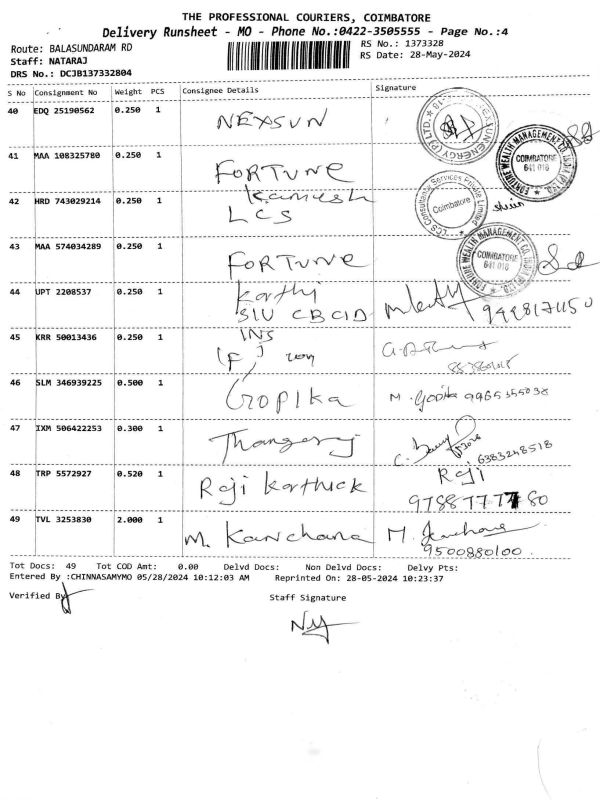 THE PROFESSIONAL COURIERS, COIMBATORE
Delivery Runsheet - MO - Phone No.:0422-3505555 - Page No.:4
Route: BALASUNDARAM RD
RS No.: 1373328
Staff: NATARAJ
RS Date: 28-May-2024
DRS No.: DCJB137332804
S No Consignment No Weight PCS Consignee Details Signature
40 EDQ 25190562 0.250 1 NEXSUN
41 MAA 108325780 0.250 1 FORTUNE
FORTUNE WEALTH MANAGEMENT CO. INDIA (P) LTD. COIMBATORE 641 018
42 HRD 743029214 0.250 1 Kamesh
LCS
LCS Consultancy Services Private Limited Coimbatore
43 MAA 574034289 0.250 1 FORTUNE
FORTUNE WEALTH MANAGEMENT CO. INDIA (P) LTD. COIMBATORE 641 018
44 UPT 2208537 0.250 1 Karthi
SIU CBCID
45 KRR 50013436 0.250 1 INS
46 SLM 346939225 0.500 1 Gopika M. Gopika 9965355038
47 IXM 506422253 0.300 1 Thangaraj
6383248518
48 TRP 5572927 0.520 1 Raji Karthick Raji
49 TVL 3253830 2.000 1 M. Kanchana M. Kanchana
9500880100.
Tot Docs: 49 Tot COD Amt: 0.00 Delvd Docs: Non Delvd Docs: Delvy Pts:
Entered By :CHINNASAMYMO 05/28/2024 10:12:03 AM Reprinted On: 28-05-2024 10:23:37
Verified By
Staff Signature